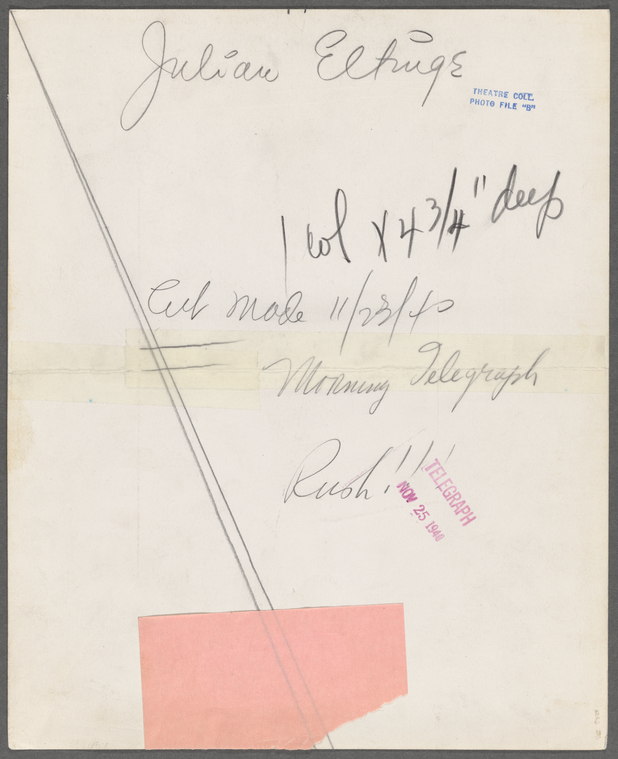 Julian Eltinge
THEATRE COLL.
PHOTO FILE "B"
1 col x 4 3/4" deep
Cut Made 11/23/40
Morning Telegraph
Rush!!!!
TELEGRAPH
NOV 25 1940